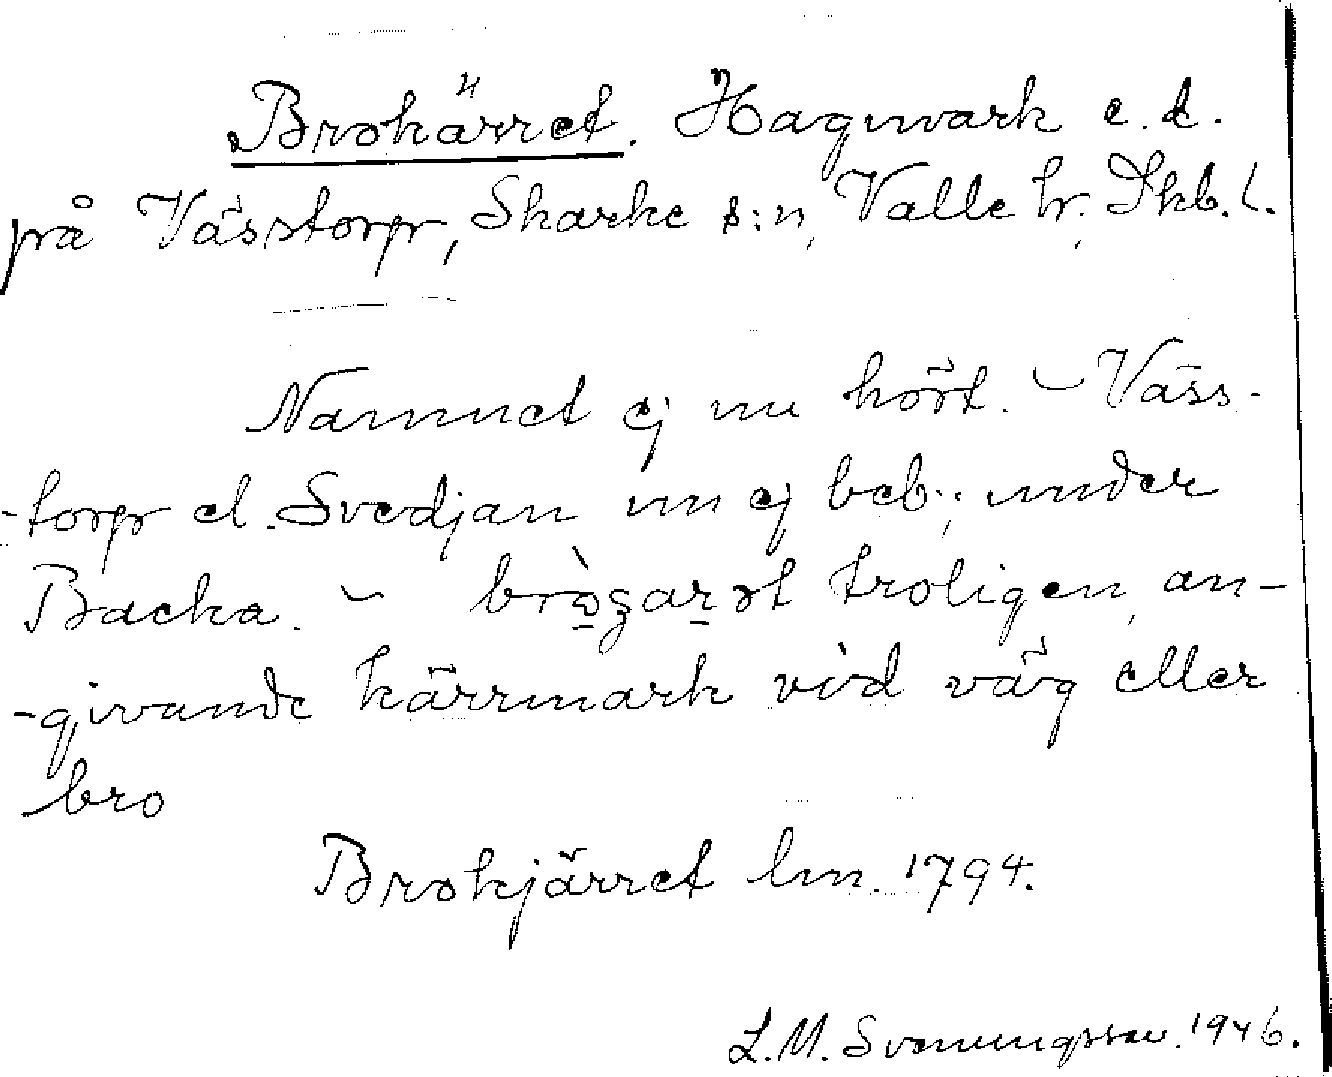 Brokärret. Hagmark e.d.
på Vässtorp, Skarke s:n, Valle hr, Skb. l.
Namnet ej nu hört. – Väss-
-torp el. Svedjan nu ej beb.; under
Backa. – troligen, an-
-givande kärrmark vid väg eller
bro
Brokjärret lm. 1794.
L.M. Svenungsson. 1946.